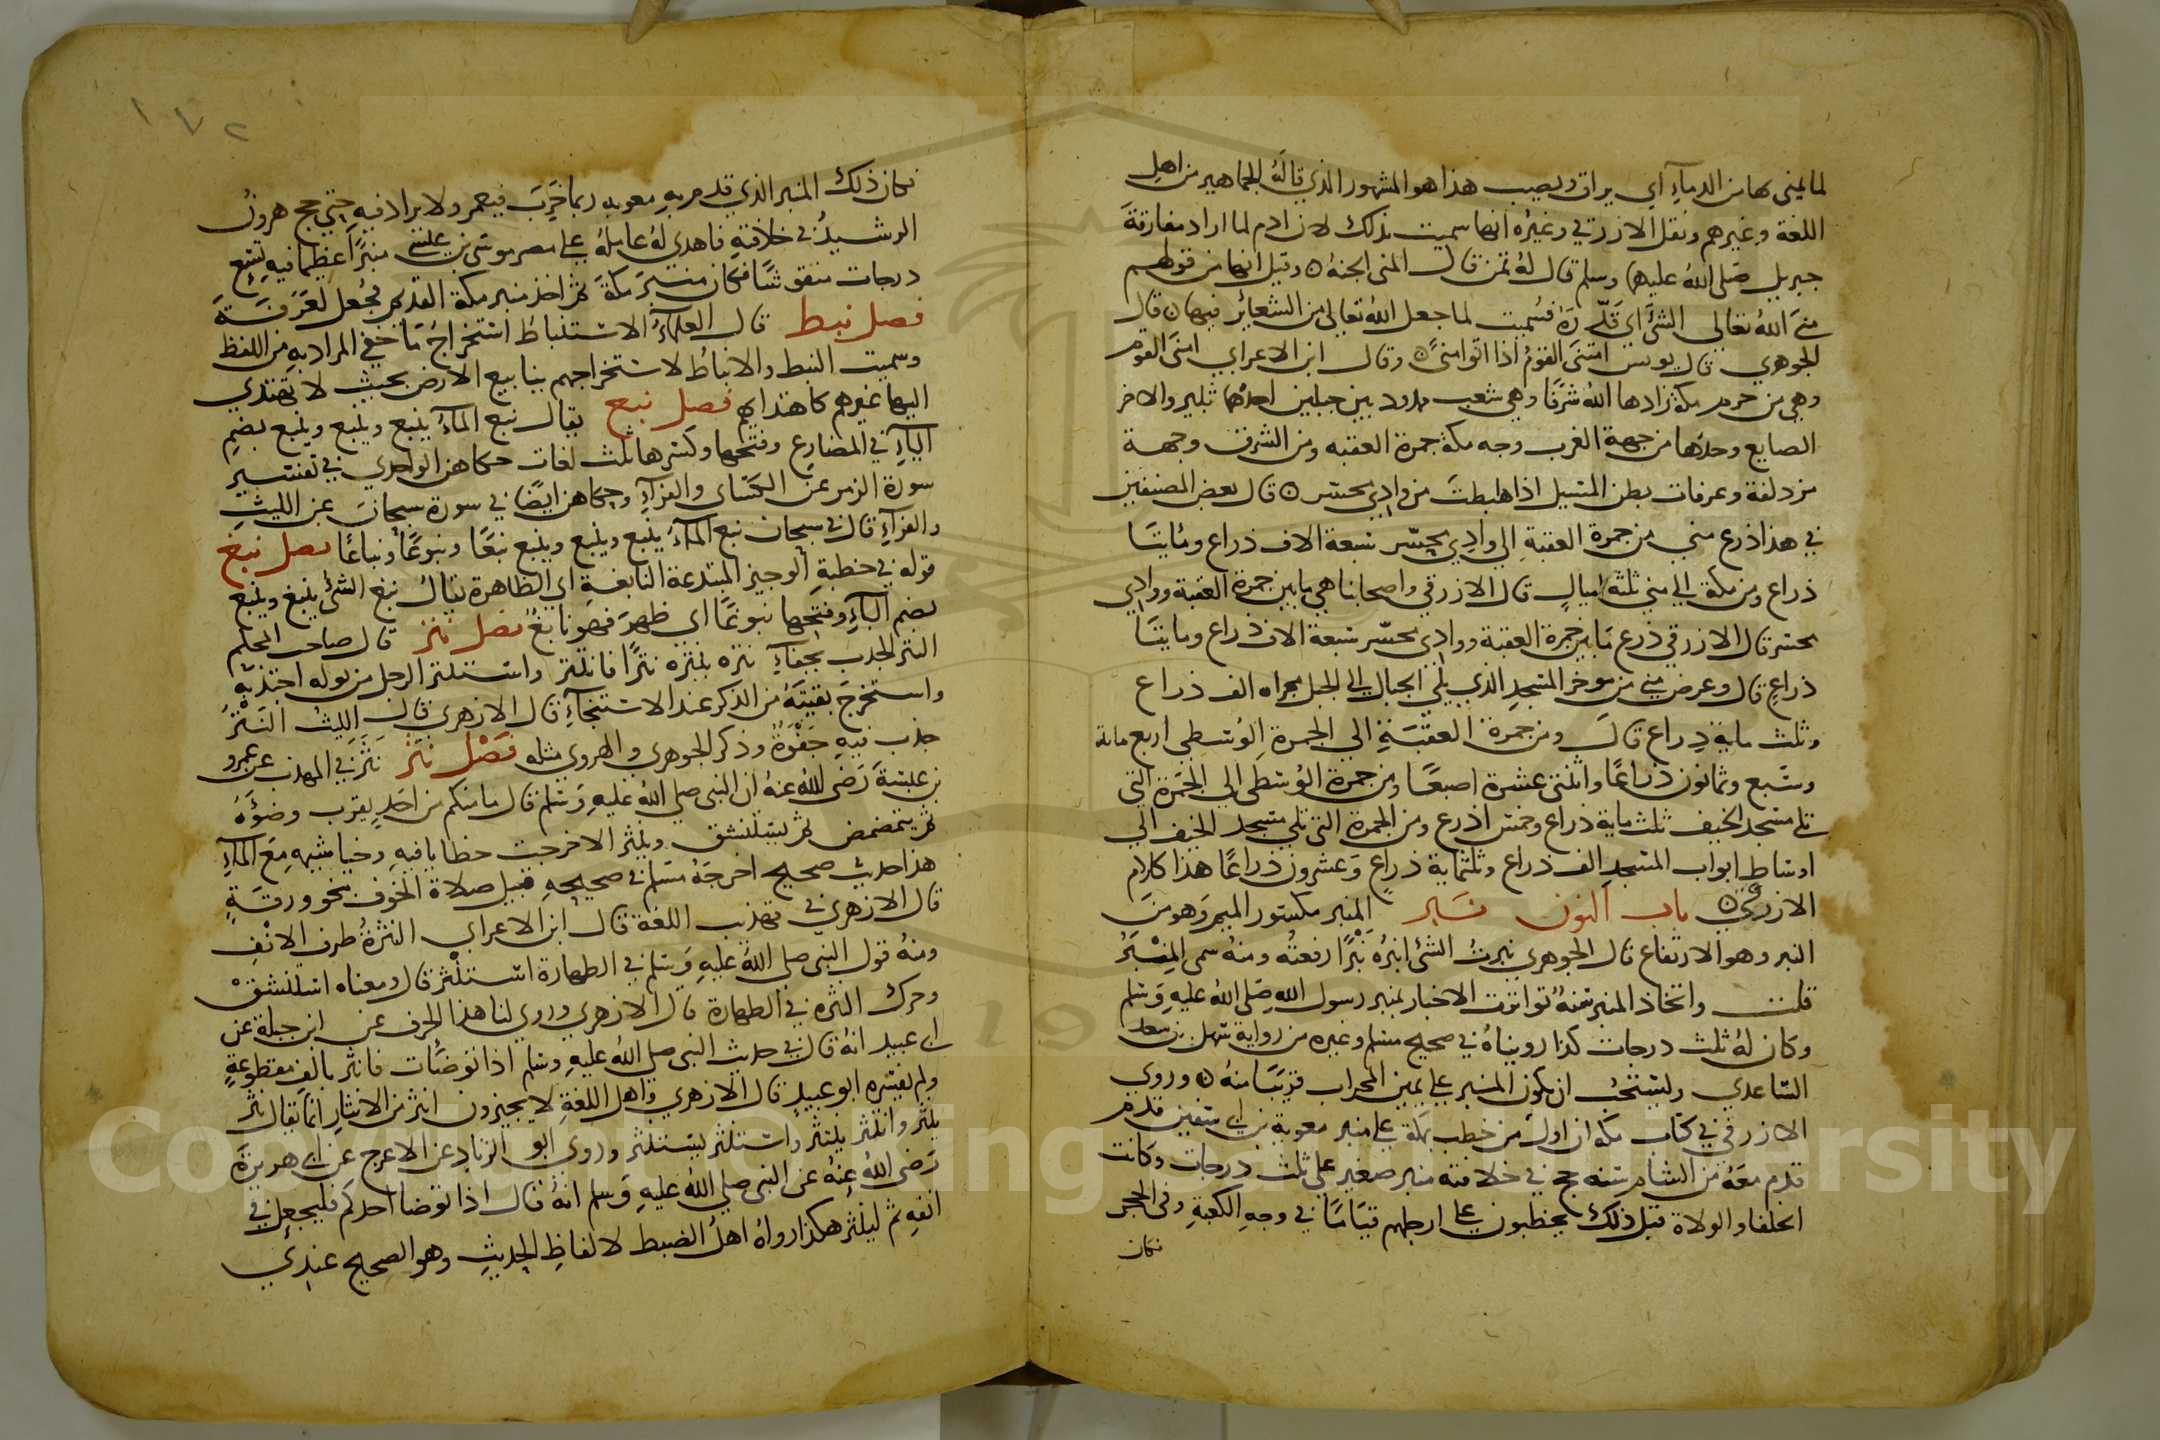 لما يمنى بها من الدماء اي يراق ويصب هذا هو المشهور الذي قاله الجماهير من اهل
اللغة وغيرهم ونقل الازرقي وغيره انها سميت بذلك لان ادم لما اراد مفارقة
جبريل صلى الله عليهما وسلم قال له تمن قال اتمنى الجنة ٥ وقيل انها من قولهم
منى الله تعالى الشئ اي قدّره فسميت لما جعل الله تعالى من الشعائر فيها ٥ قال
الجوهري قال يونس امتنى القوم اذا اتوا منى ٥ وقال ابن الاعرابي امنى القوم
وهي من حرم مكة زادها الله شرفا وهي شعب ممدود بين جبلين احدهما ثبير والاخر
الصابع وحدها من جهة الغرب وجه مكة جمرة العقبه ومن الشرق وجهة
مزدلفة وعرفات بطن المسيل اذا هبطت من وادي محسر ٥ قال بعض المصنفين
في هذا ذرع منى من جمرة العقبة الى وادي محسّر سبعة الاف ذراع ومايتا
ذراع ومن مكة الى منى ثلثة اميال قال الازرقي واصحابنا هي ما بين جمرة العقبة ووادي
محسر قال الازرقي ذرع ما بين جمرة العقبة ووادي محسّر سبعة الاف ذراع ومايتا
ذراع قال وعرض منى من موخر المسجد الذي يلي الجبال الى الجبل بحراه الف ذراع
وثلث ماية ذراع قال ومن جمرة العقبة الي الجمرة الوسطى اربع ماية
وسبع وثمانون ذراعا واثنتى عشرة اصبعا ومن جمرة الوسطى الى الجمرة التي
تلي مسجد الخيف ثلث ماية ذراع وخمس اذرع ومن الجمرة التي تلي مسجد الخيف الى
اوساط ابواب المسجد الف ذراع وثلثماية ذراع وعشرون ذراعا هذا كلام
الازرقي ٥ باب النون نبر المنبر مكسور الميم وهو من
النبر وهو الارتفاع قال الجوهري نبرت الشئ انبره نبرًا رفعته ومنه سمى المنبر
قلت واتخاذ المنبر سنة تواترت الاخبار بمنبر رسول الله صلى الله عليه وسلم
وكان له ثلث درجات كذا رويناه في صحيح مسلم وغيره من رواية سهل بن سعد
الساعدي ويستحب ان يكون المنبر على يمين المحراب قريبا منه ٥ وروي
الازرقي في كتاب مكة ان اول من خطب بمكة على منبر معوية بن ابي سفين قدم
قدم معه من الشام سنه حج في خلافته منبر صغير على ثلث درجات وكانت
الخلفا والولاة قبل ذلك يخطبون على ارجلهم قياما في وجه الكعبة وفي الحجر
فكان
فكان ذلك المنبر الذي قدم به معويه ربما خرب فيعمر ولا يزاد فيه حتى حج هرون
الرشيد في خلافته فاهدي له عامله على مصر موسى بن عيسى منبرًا عظيما فيه تسع
درجات منقوشًا فكان منبر مكة ثم اخذ منبر مكة القديم فجعل لعرفة
فصل نبط قال العلماء الاستنباط استخراج ما خفي المراد به من اللفظ
وسميت النبط والانباط لاستخراجهم ينابيع الارض بحيث لا تهتدي
اليها غيرهم كاهتدايهم فصل نبع يقال نبع الماء ينبع وينبع وينبع بضم
الباء في المضارع وفتحها وكسرها ثلث لغات حكاهن الواحدي في تفسير
سورة الزمر عن الكساى والفراء وحكاهن ايضا في سورة سبحان عن الليث
والفراء قال في سبحان نبع الماء ينبع وينبع وينبع نبعًا ونبوعًا ونباعًا فصل نبغ
قوله في خطبة الوجيز المبتدعة النابغة اي الظاهرة يقال نبغ الشئ ينبغ وينبغ
بضم الباء وفتحها نبوغًا اي ظهر فهو نابغ فصل نتر قال صاحب المحكم
النتر الجذب بجفاء نتره ينتره نترًا فانتتر واستنتر الرجل من بوله اجتذبه
واستخرج بقيته من الذكر عند الاستنجاء قال الازهري قال الليث النتر
جذب فيه جفوة وذكر الجوهري والهروي مثله فصل نثر نثر في المهذب عن عمرو
بن عبسة رضى الله عنه ان النبي صلى الله عليه وسلم قال ما منكم من احد يقرب وضوءه
ثم يتمضمض ثم يستنشق وينثر الا خرجت خطايا فيه وخياشيمه مع الماء
هذا حديث صحيح اخرجه مسلم في صحيحه قبيل صلاة الخوف بنحو ورقة
قال الازهري في تهذيب اللغة قال ابن الاعرابي النثرة طرف الانف
ومنه قول النبي صلى الله عليه وسلم في الطهارة استنثر قال ومعناه استنشق
وحرك النثره في الطهارة قال الازهري وروي لنا هذا الحرف عن ابن جبلة عن
ابي عبيد انه قال في حديث النبي صلى الله عليه وسلم اذا توضات فانثر بالف مقطوعة
ولم يفسره ابو عبيد قال الازهري واهل اللغة لا يجيزون انثر من الانثار انما يقال نثر
ينثر وانتثر ينتثر واستنثر يستنثر وروي ابو الزناد عن الاعرج عن ابي هريرة
رضي الله عنه عن النبي صلي الله عليه وسلم انه قال اذا توضا احدكم فليجعل في
انفه ثم لينثر هكذا رواه اهل الضبط لالفاظ الحديث وهو الصحيح عندي
١٧٢
Copyright © King Saud University